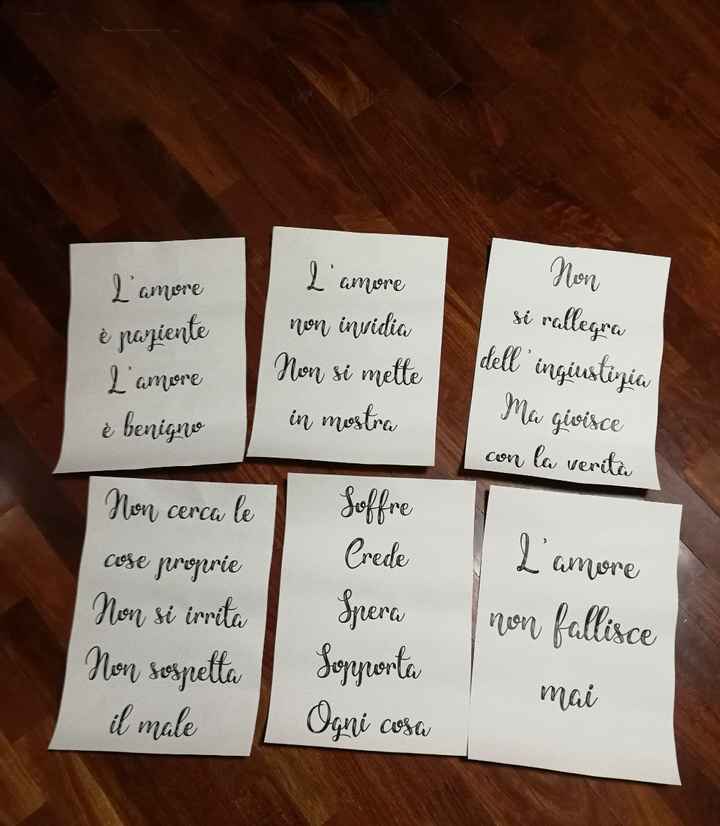 L'amore
è paziente
L'amore
è benigno
L'amore
non invidia
Non si mette
in mostra
Non
si rallegra
dell'ingiustizia
Ma gioisce
con la verità
Non cerca le
cose proprie
Non si irrita
Non sospetta
il male
Soffre
Crede
Spera
Sopporta
Ogni cosa
L'amore
non fallisce
mai